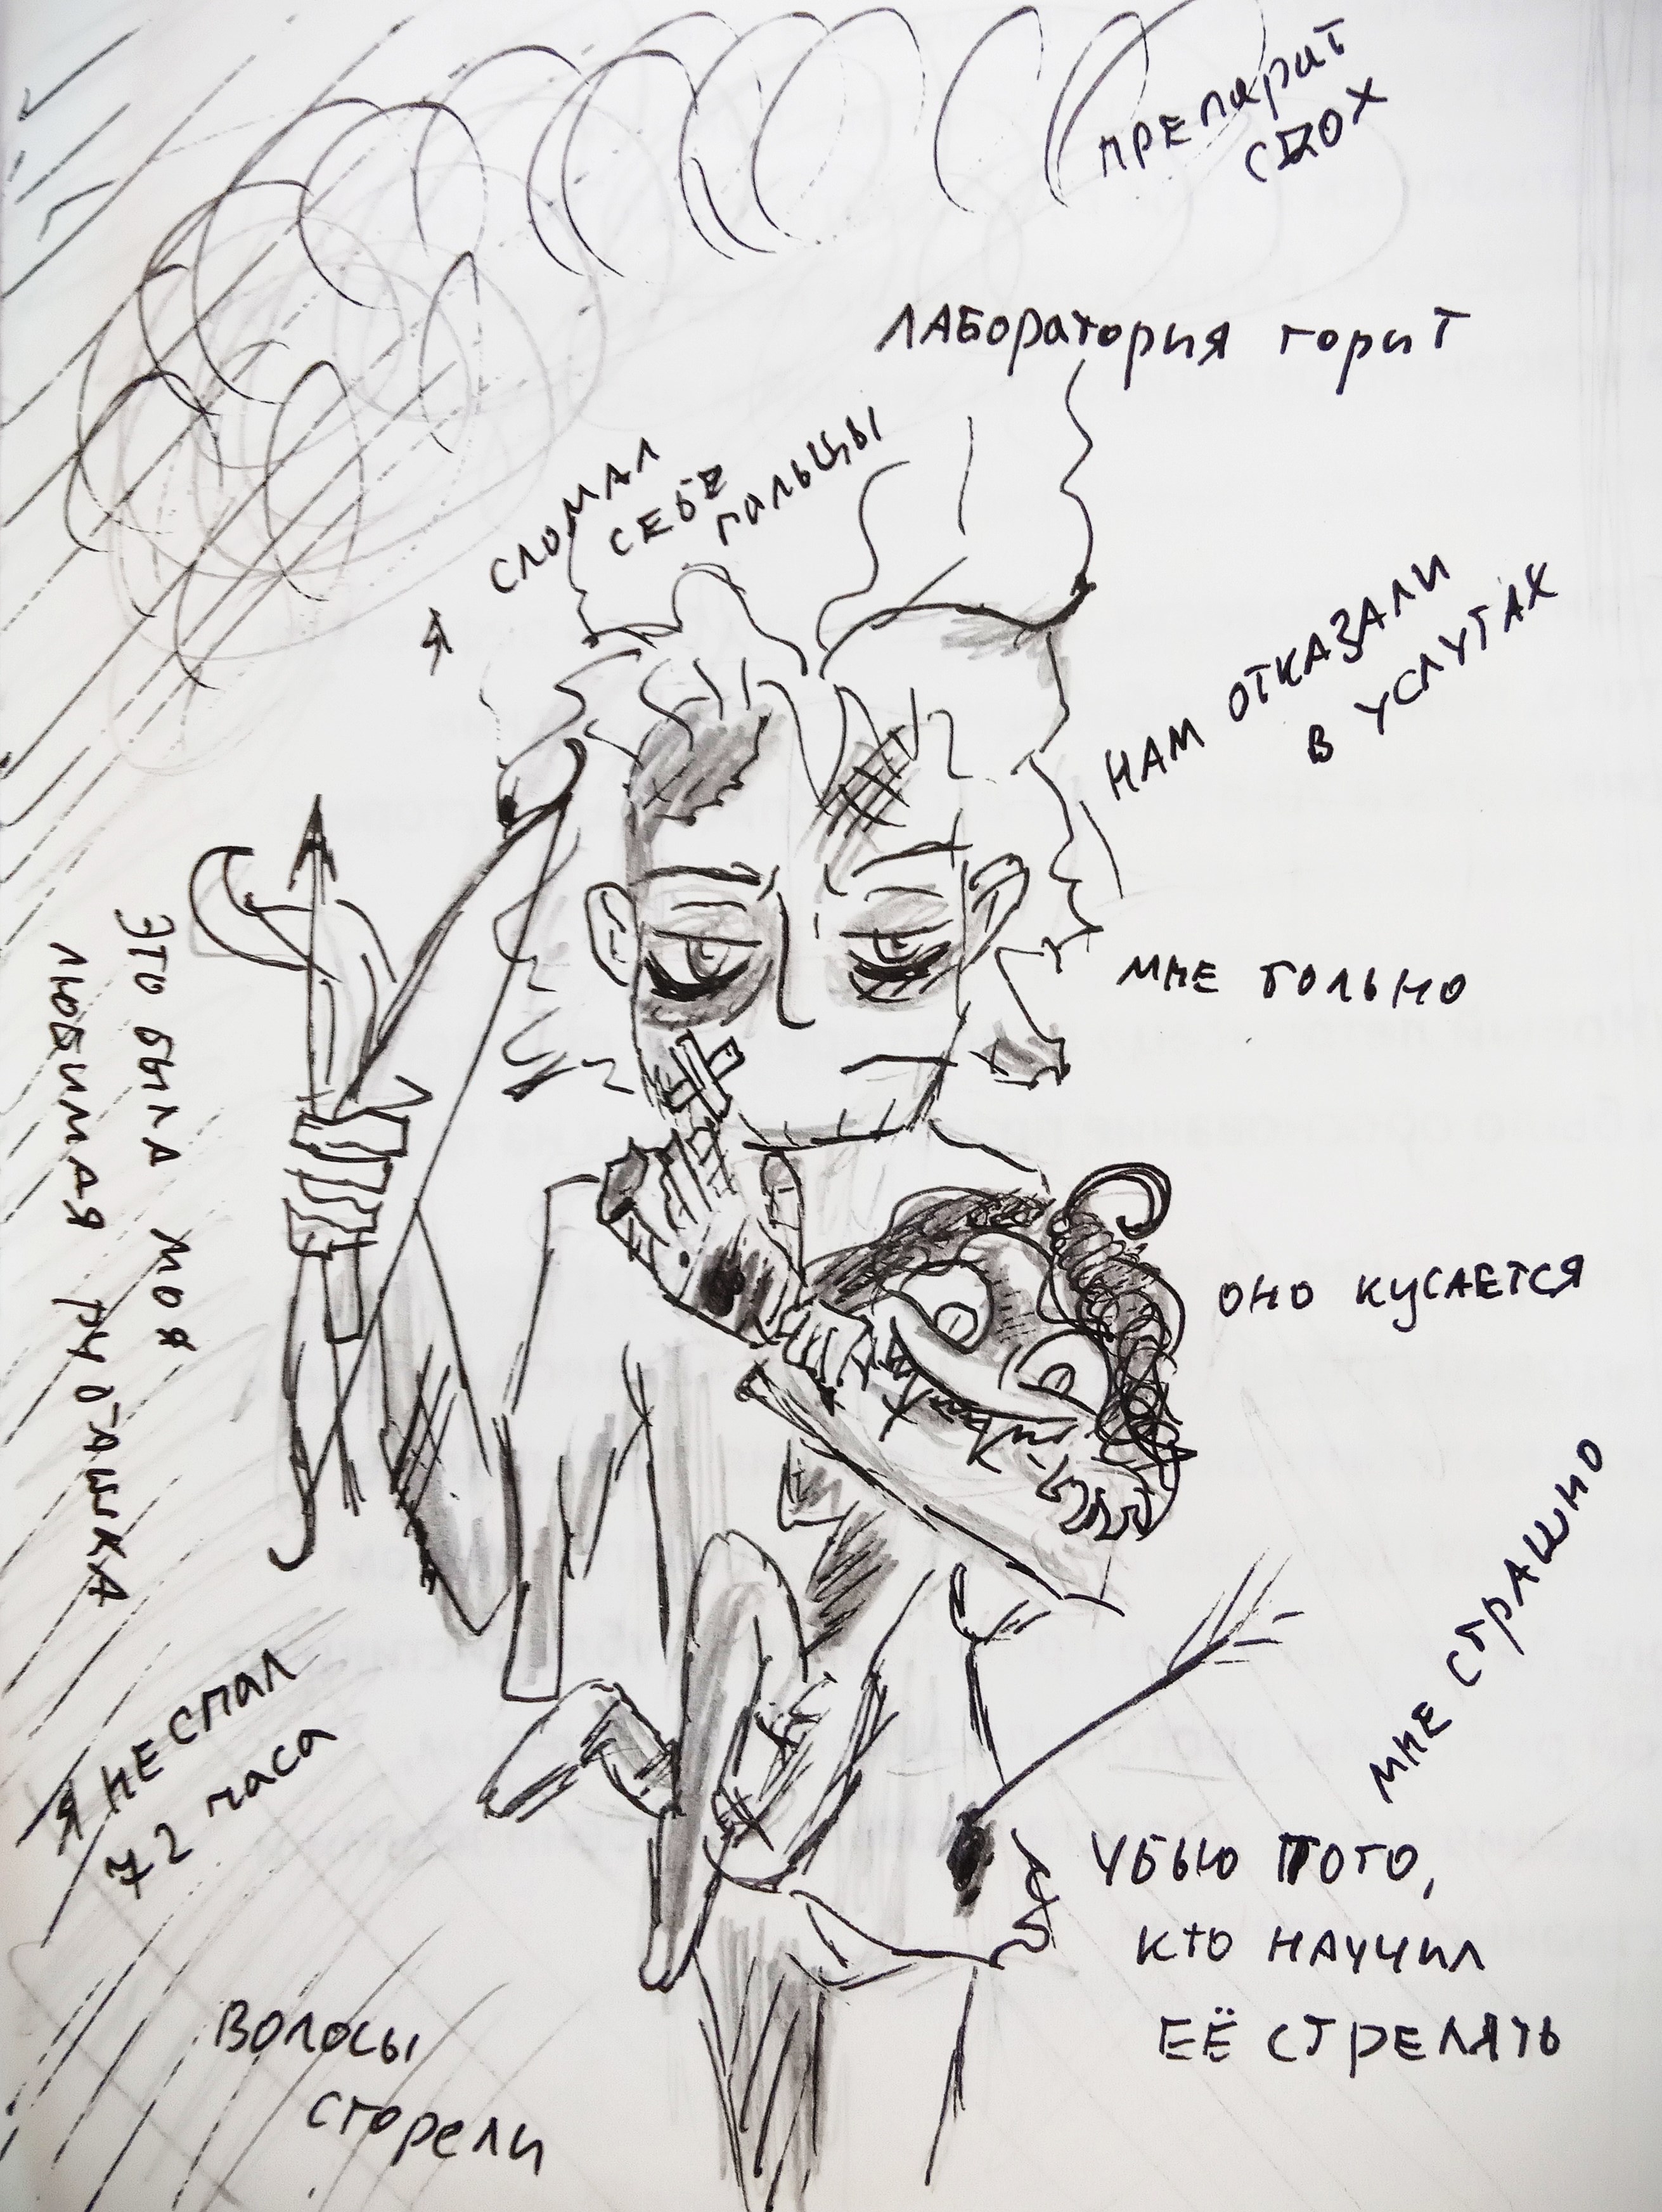 ПРЕПАРАТ
СДОХ
ЛАБОРАТОРИЯ ГОРИТ
Я СЛОМАЛ
СЕБЕ
ПАЛЬЦЫ
НАМ ОТКАЗАЛИ
В УСЛУГАХ
МНЕ ТОЛЬНО
ЭТО БЫЛА МОЯ
ЛЮБИМАЯ РУБАШКА
ОНО КУСАЕТСЯ
МНЕ СТРАШНО
Я НЕ СПАЛ
72 часа
УБЬЮ ТОГО,
КТО НАУЧИЛ
ЕЁ СТРЕЛЯТЬ
ВОЛОСЫ
СГОРЕЛИ